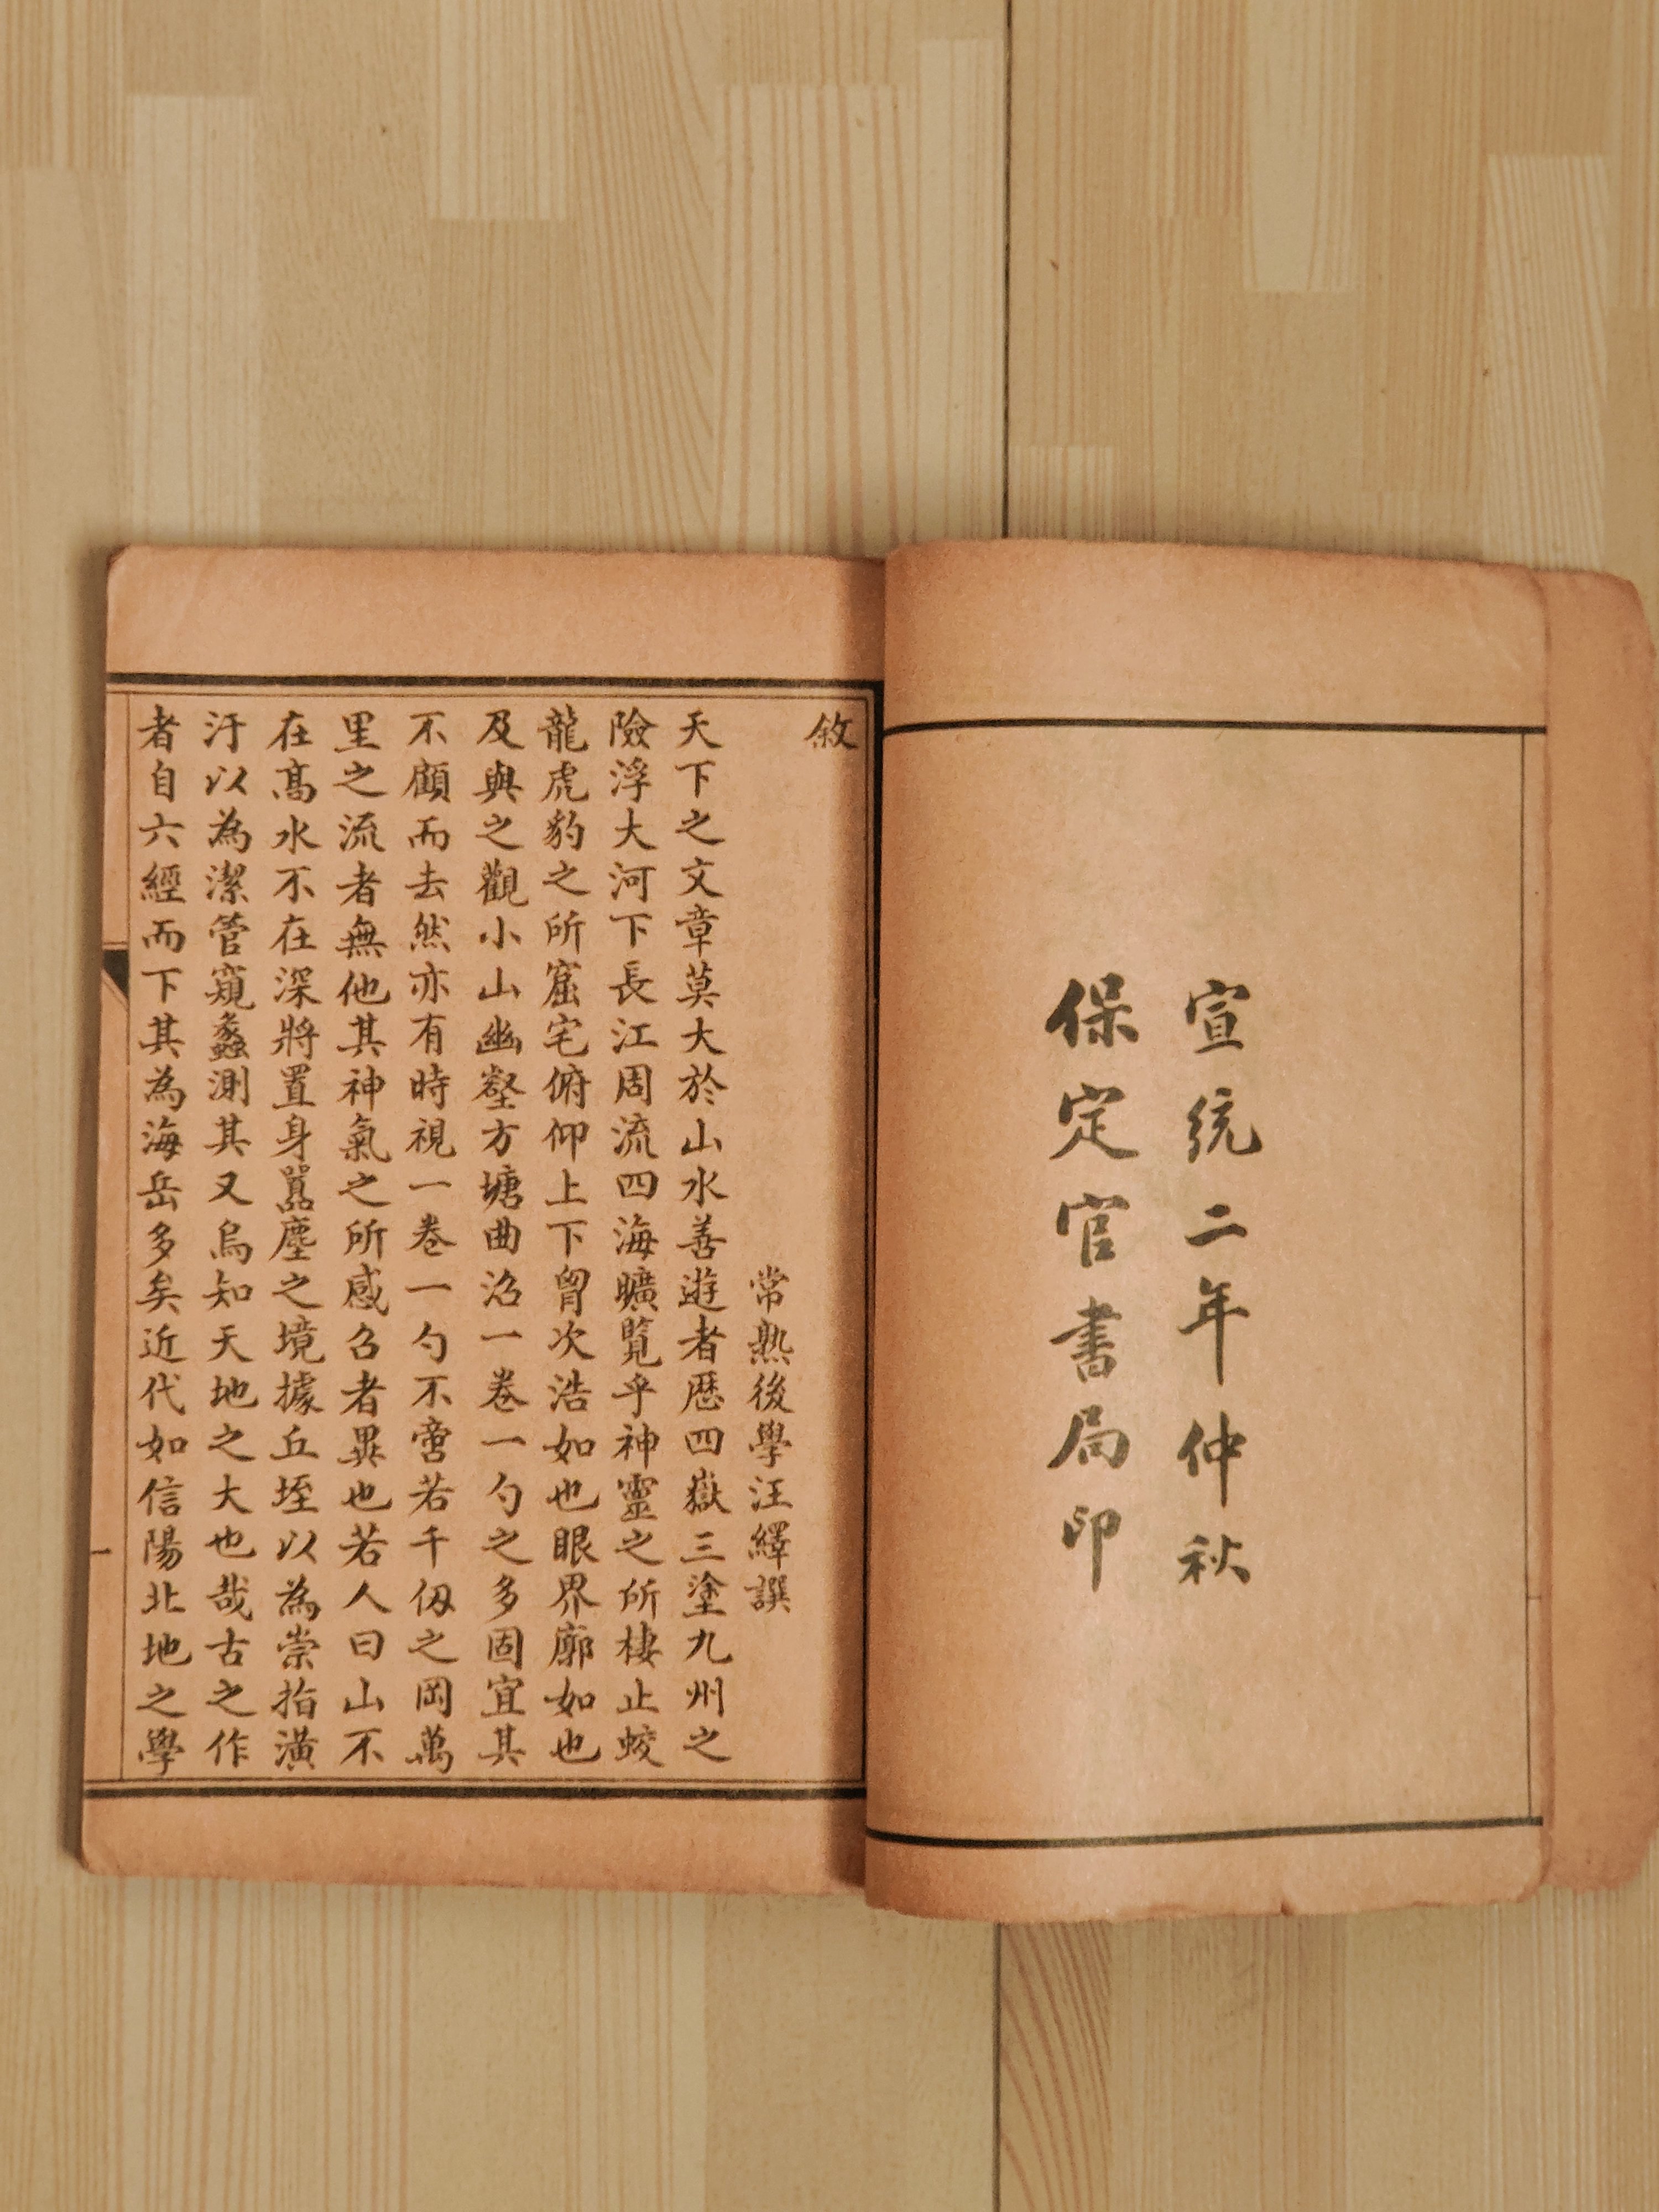 宣統二年仲秋
保定官書局印
敘
常熟後學汪繹譔
天下之文章莫大於山水善遊者歴四嶽三塗九州之
險浮大河下長江周流四海曠覽乎神靈之所棲止蛟
龍虎豹之所窟宅俯仰上下胷次浩如也眼界廓如也
及與之觀小山幽壑方塘曲沼一卷一勺之多固宜其
不顧而去然亦有時視一卷一勺不啻若千仭之岡萬
里之流者無他其神氣之所感召者異也若人曰山不
在髙水不在深將置身囂塵之境據丘垤以為崇指潢
汙以為潔管窺蠡測其又烏知天地之大也哉古之作
者自六經而下其為海岳多矣近代如信陽北地之學
一